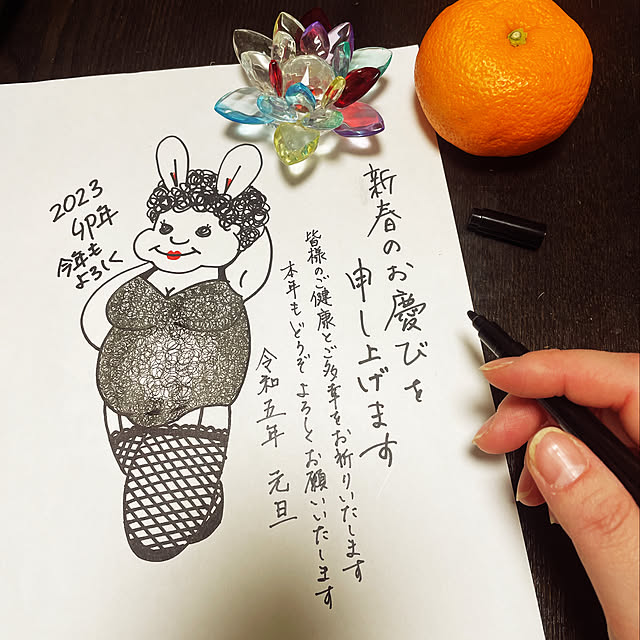 新春のお慶びを
申し上げます
皆様のご健康とご多幸をお祈りいたします
本年もどうぞよろしくお願いいたします
令和五年 元旦
2023
卯年
今年も
よろしく